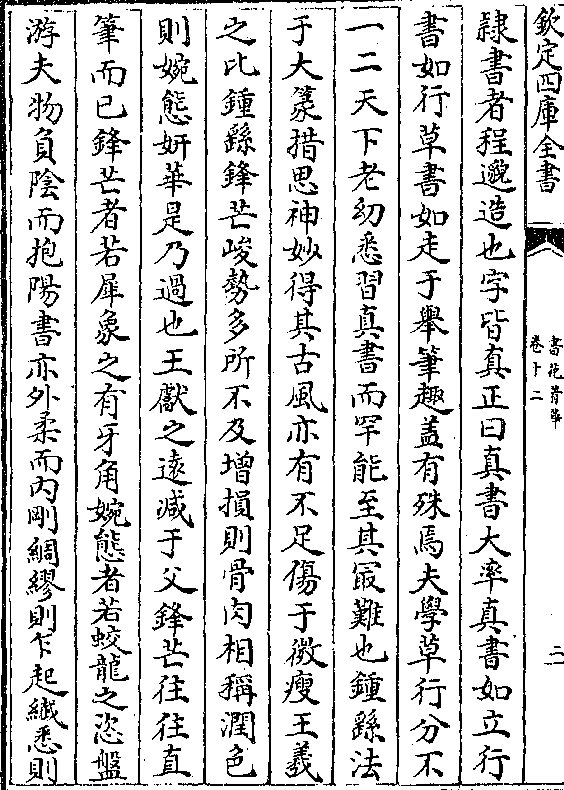 欽定四庫全書
書苑菁華
卷十二
二
隷書者程邈造也字皆真正曰真書大率真書如立行
書如行草書如走于舉筆趣盖有殊焉夫學草行分不
一二天下老幼悉習真書而罕能至其冣難也鍾繇法
于大篆措思神妙得其古風亦有不足傷于微瘦王羲
之比鍾繇鋒芒峻勢多所不及增損則骨肉相稱潤色
則婉態妍華是乃過也王獻之逺减于父鋒芒往往直
筆而已鋒芒者若犀象之有牙角婉態者若蛟龍之恣盤
游夫物負陰而抱陽書亦外柔而内剛綢繆則乍起纎悉則